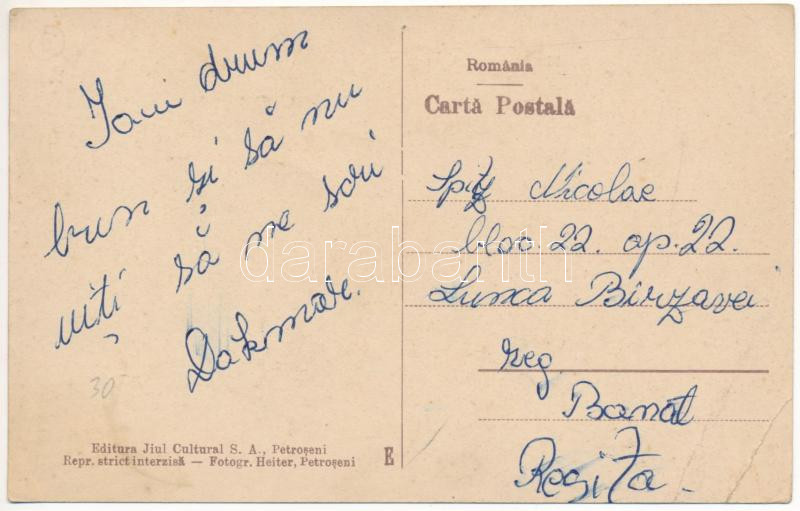 Iani drum
bun și să nu
uiți să me scri
Dakmare.
30
Editura Jiul Cultural S. A., Petroșeni
Repr. strict interzisă — Fotogr. Heiter, Petroșeni
E
România
Cartă Postală
Spitz Nicolae
bloc. 22. ap. 22.
Lunca Birzavei
reg
Banat
Reșița
darabanth